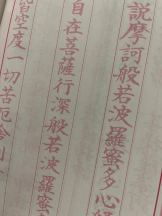 説摩訶般若波羅蜜多心經
自在菩薩行深般若波羅蜜
皆空度一切苦厄舍利